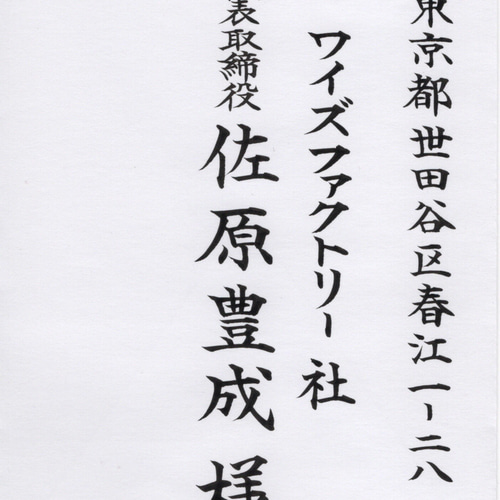 東京都世田谷区春江一ー二八
ワイズファクトリー社
表取締役 佐原豊成様